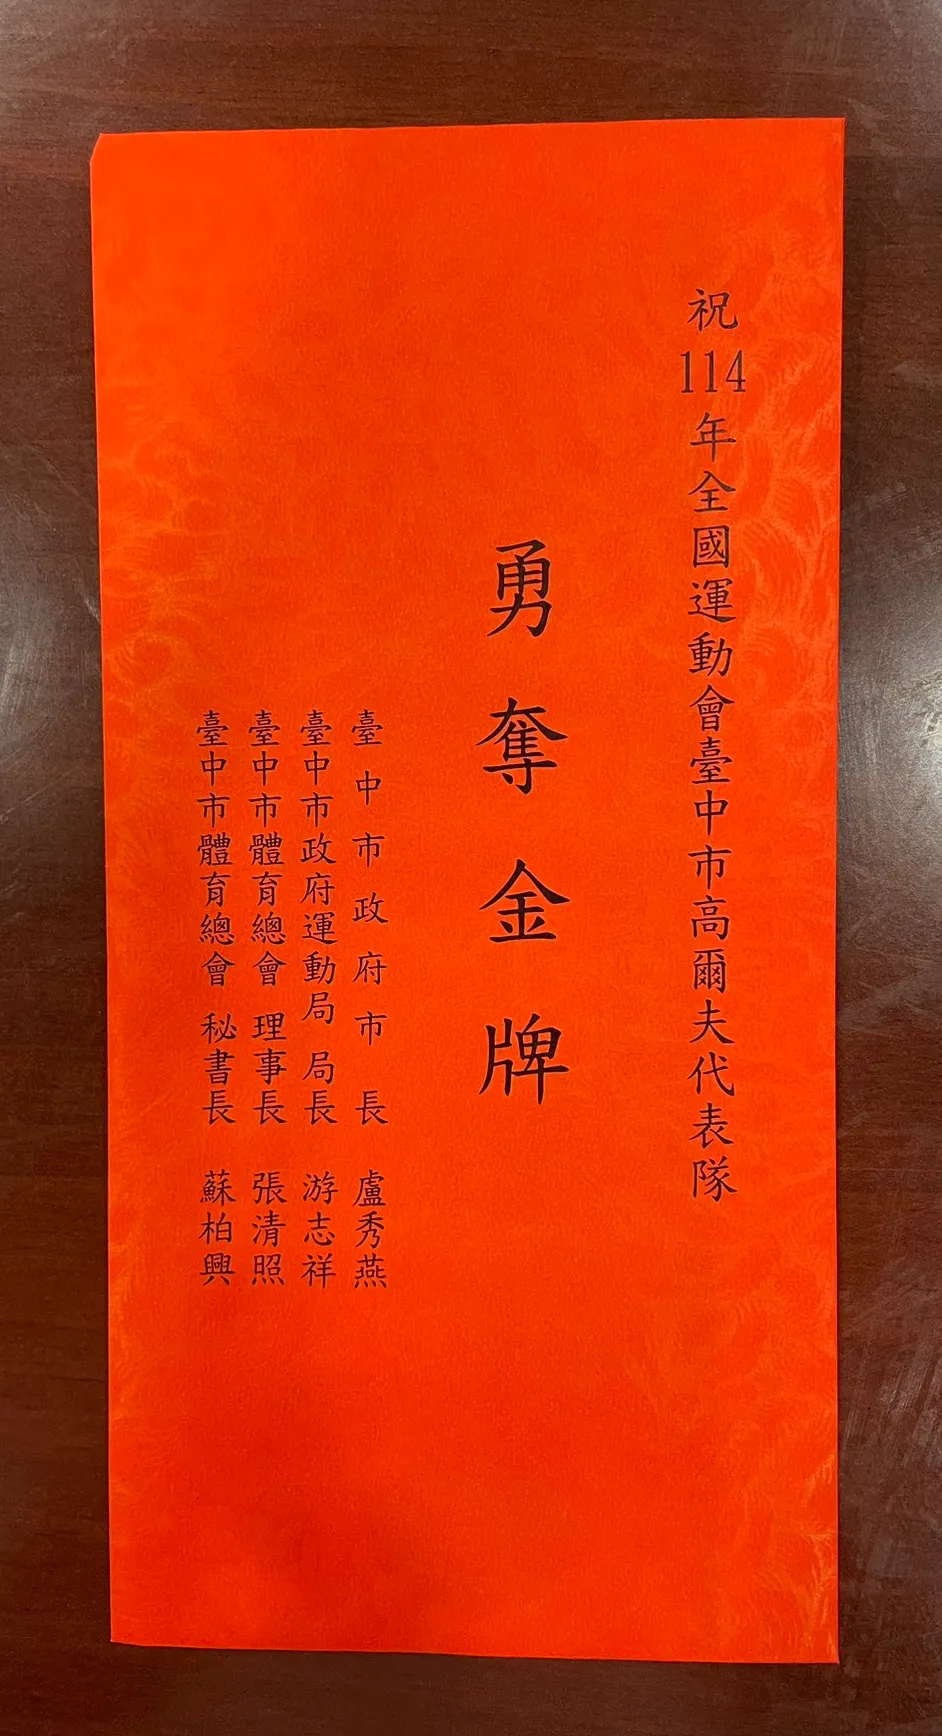 祝114年全國運動會臺中市高爾夫代表隊
勇奪金牌
臺中市政府市長 盧秀燕
臺中市政府運動局 局長 游志祥
臺中市體育總會 理事長 張清照
臺中市體育總會 秘書長 蘇柏興